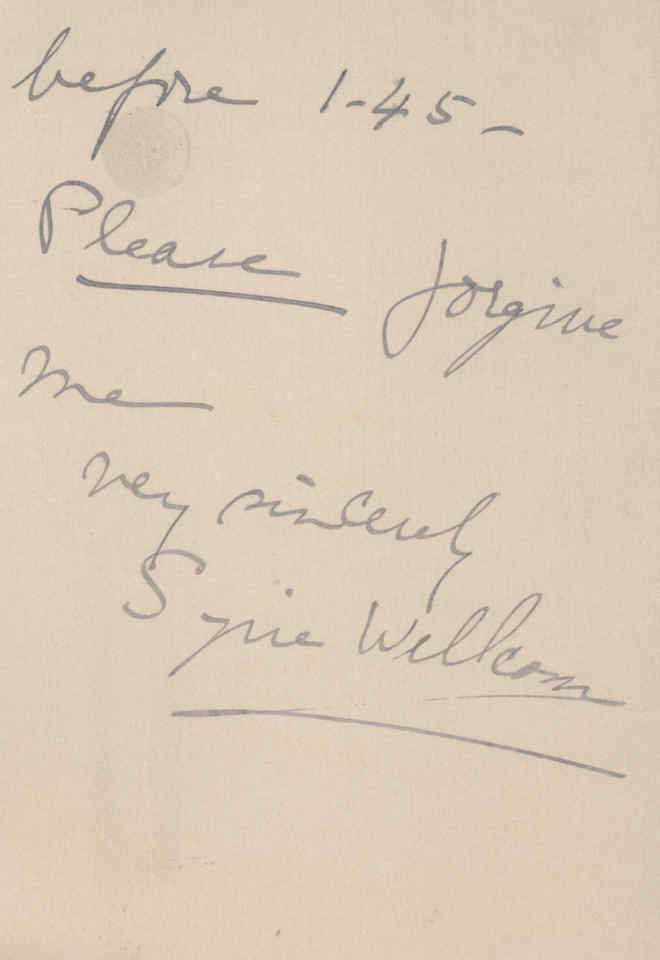 before 1-45-
Please forgive
me
very sincerely
Syrie Wellcome